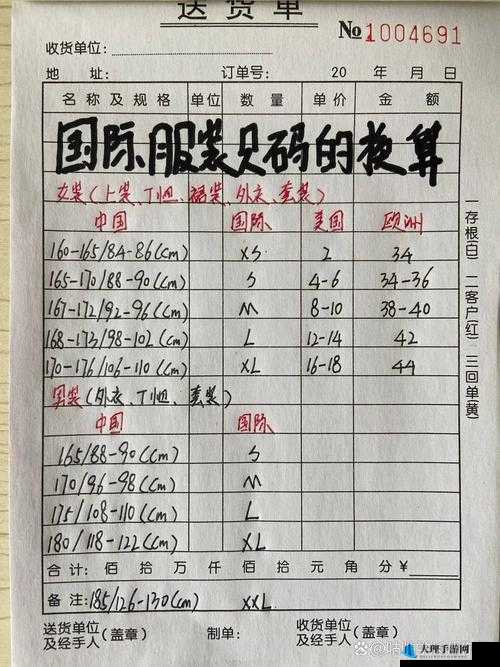 送货单
№1004691
收货单位：
地 址： 订单号： 20 年 月 日
名称及规格 单位 数量 单价 金额
国际服装尺码的换算
女装(上装、T恤、裙装、外衣、套装)
中国 国际 美国 欧洲
160-165/84-86(cm) XS 2 34
165-170/88-90(cm) S 4-6 34-36
167-172/92-96(cm) M 8-10 38-40
168-173/98-102(cm) L 12-14 42
170-176/106-110(cm) XL 16-18 44
男装(外衣、T恤、套装)
中国 国际
165/88-90(cm) S
170/96-98(cm) M
175/108-110(cm) L
180/118-122(cm) XL
合计： 佰 拾 万 仟 佰 拾 元 角 分 ¥
备注：185/126-130(cm) XXL
送货单位及经手人(盖章) 制单： 收货单位及经手人
一存根(白) 二客户(红) 三回单(黄)
大理手游网